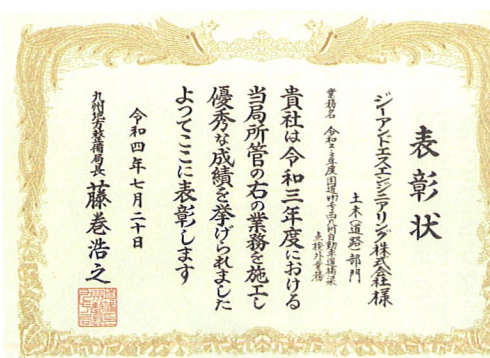 表彰状
ジーアンドエスエンジニアリング株式会社様
土木(道路)部門
業務名 令和2・3年度国道497号西九州自動車道橋梁
点検外業務
貴社は令和三年度における
当局所管の右の業務を施工し
優秀な成績を挙げられました
よってここに表彰します
令和四年七月二十日
九州地方整備局長 藤巻浩之